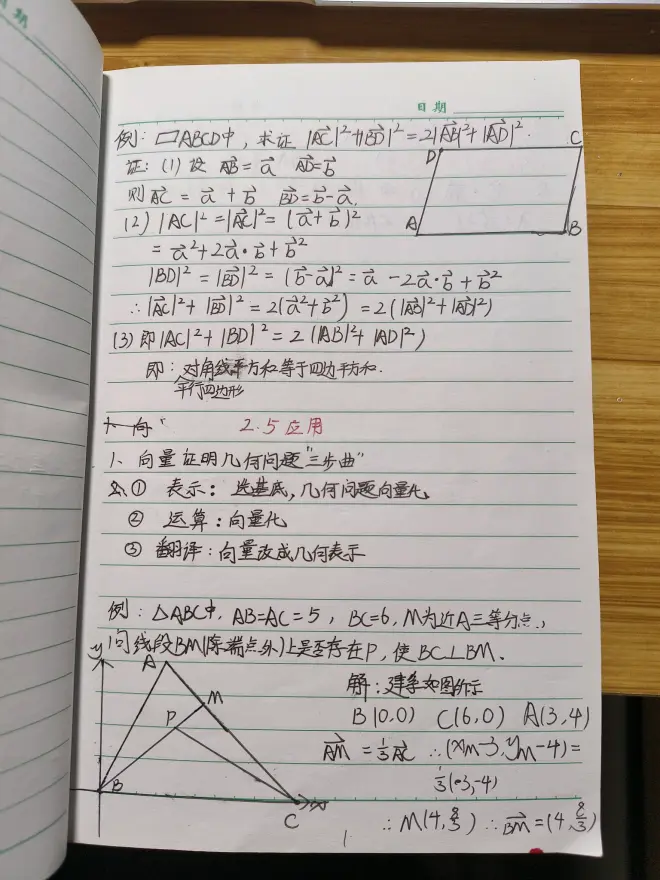 日期
例：▱ABCD中，求证 |AC⃗|²+|BD⃗|²=2|AB⃗|²+|AD⃗|².
证：(1) 设 AB⃗=a⃗ AD⃗=b⃗
则 AC⃗ = a⃗ + b⃗ BD⃗=b⃗-a⃗.
(2) |AC|²=|AC⃗|²=(a⃗+b⃗)²
= a⃗²+2a⃗·b⃗+b⃗²
|BD|²=|BD⃗|²=(b⃗-a⃗)²=a⃗-2a⃗·b⃗+b⃗²
∴|AC⃗|²+|BD⃗|²=2(a⃗²+b⃗²)=2(|AB⃗|²+|AD⃗|²)
(3) 即|AC|²+|BD|²=2(|AB|²+|AD|²)
即：对角线平方和等于四边平方和.
平行四边形
D C
A B
2.5 应用
1、向量证明几何问题"三步曲"
① 表示：选基底，几何问题向量化
② 运算：向量化
③ 翻译：向量改成几何表示
例：△ABC中，AB=AC=5，BC=6，M为近A三等分点，
问线段BM(除端点外)上是否存在P，使BC⊥BM.
解：建系如图所示
B(0,0) C(6,0) A(3,4)
AM⃗=1/3AC⃗ ∴(xM-3,yM-4)=
1/3(3,-4)
∴M(4,8/3) ∴BM⃗=(4,8/3)
y A M P B C x
1